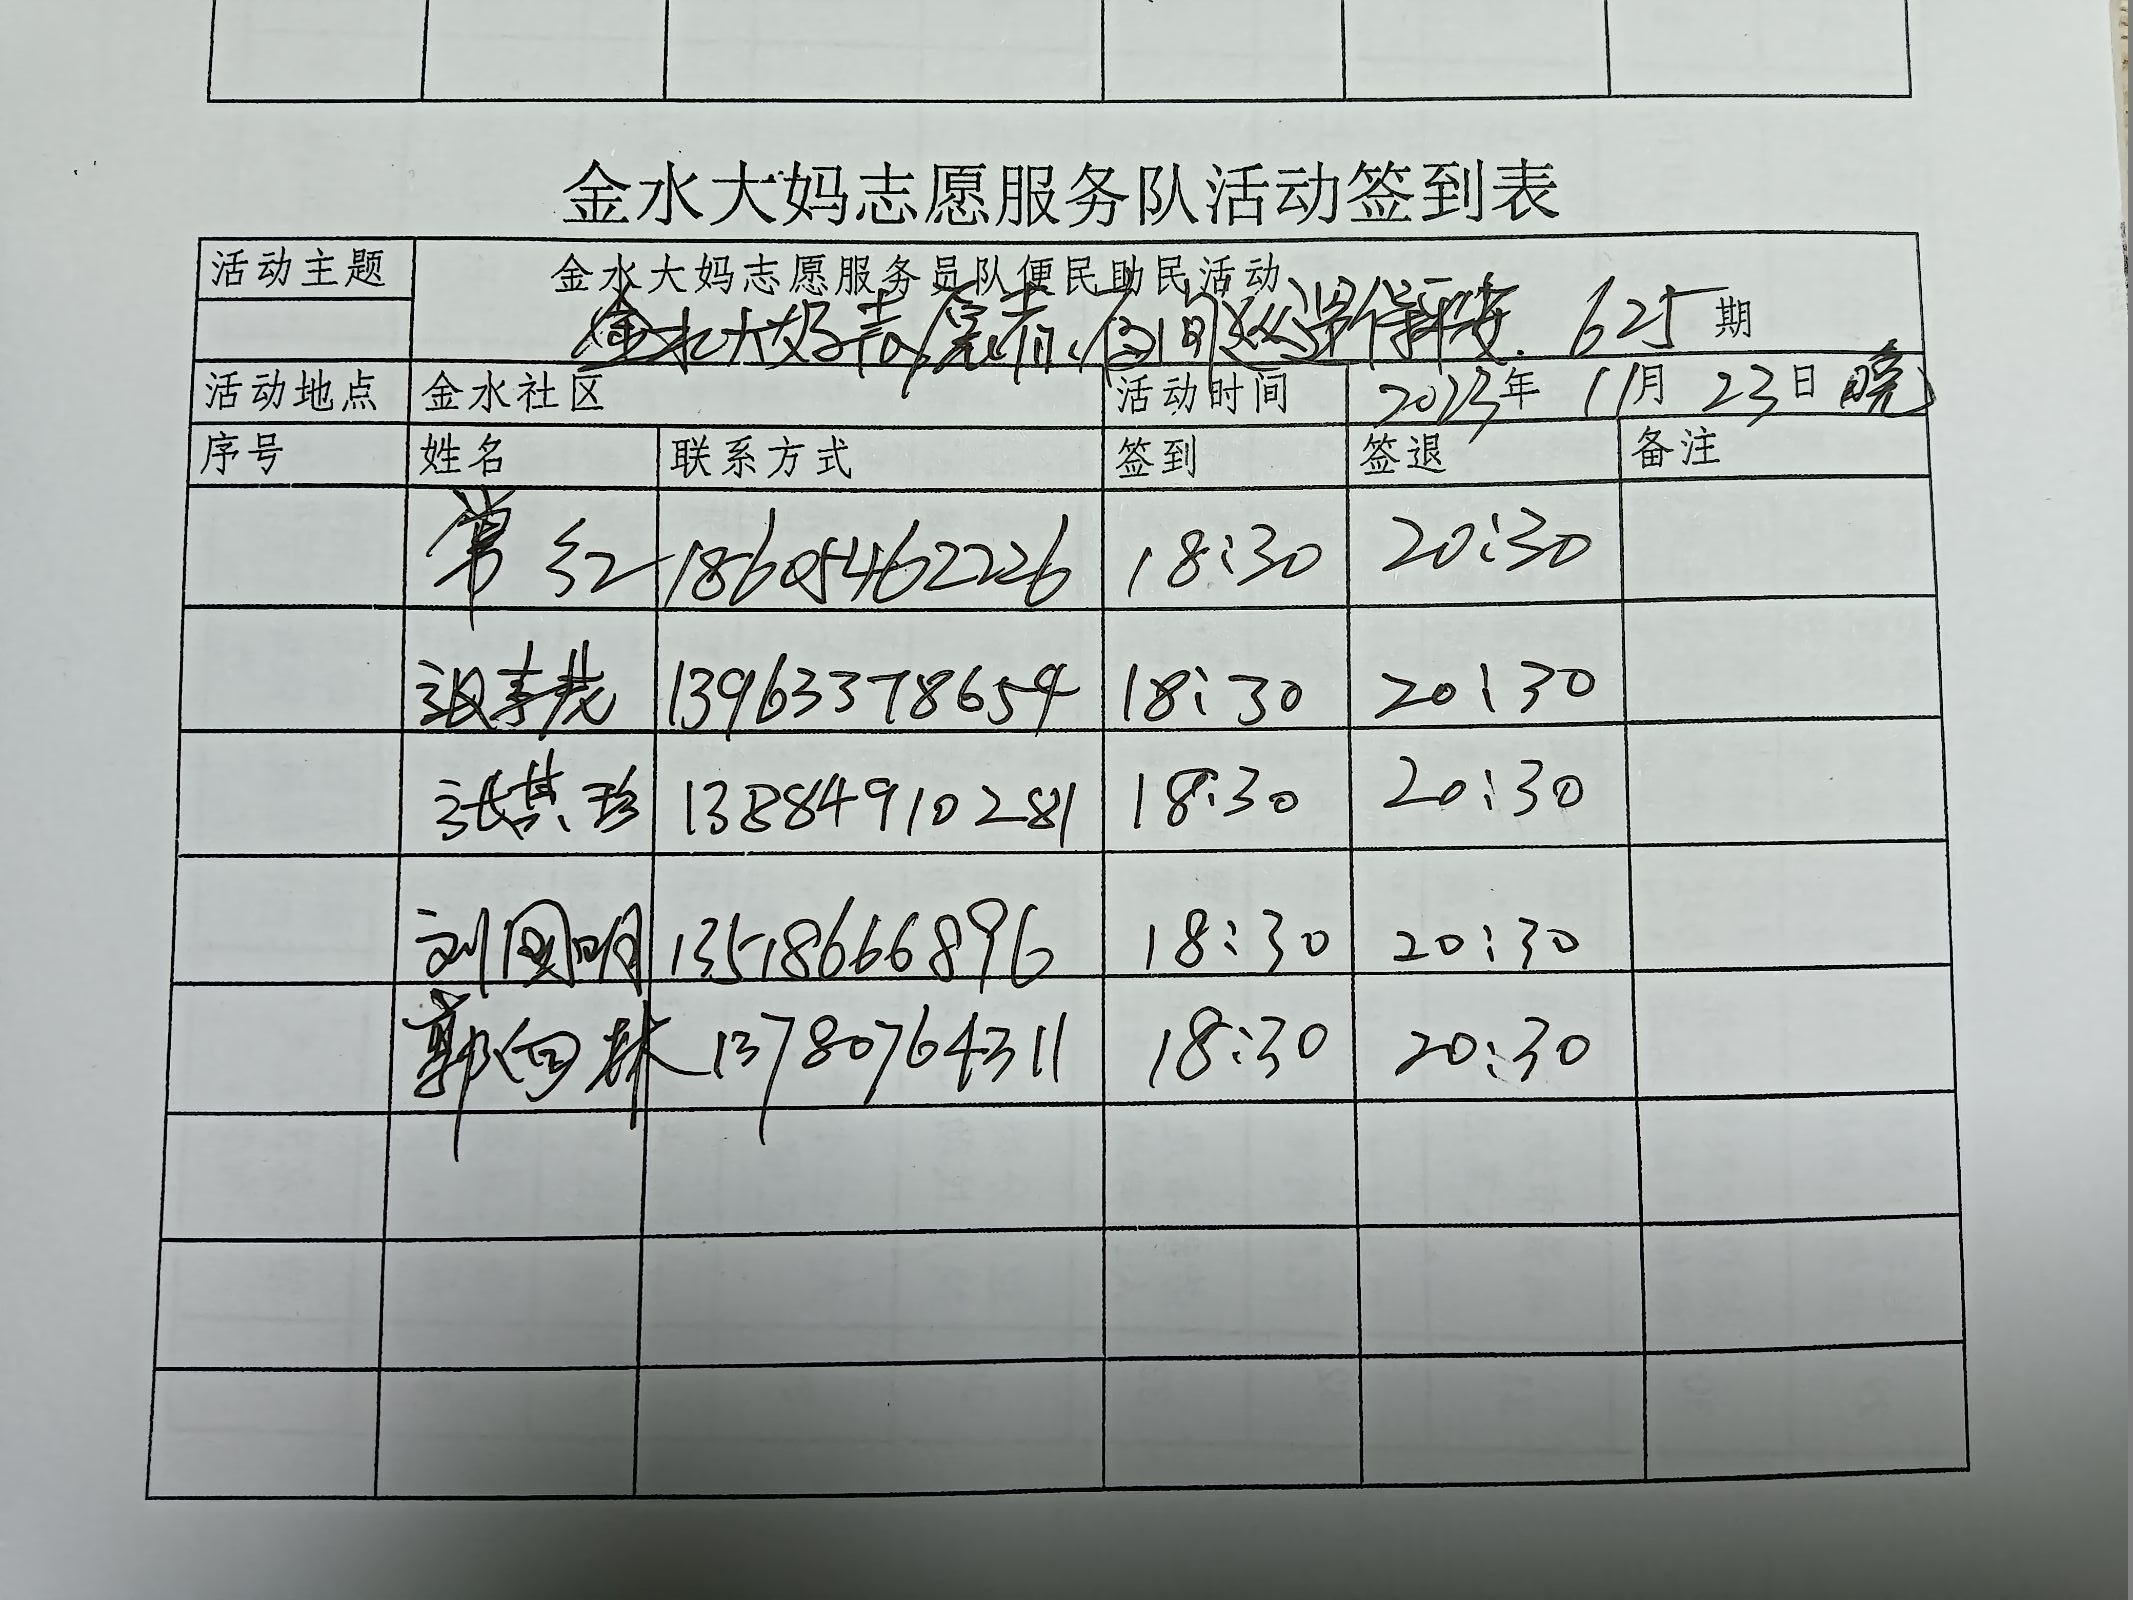 金水大妈志愿服务队活动签到表
活动主题 金水大妈志愿服务员队便民助民活动
金水大妈志愿者夜间巡逻保平安. 625期
活动地点 金水社区 活动时间 2023年 11月 23日 晚
序号 姓名 联系方式 签到 签退 备注
常红 18605462226 18:30 20:30
13963378654 18:30 20:30
张其珍 13884910281 18:30 20:30
刘国明 13518666896 18:30 20:30
郭向林 13780764311 18:30 20:30